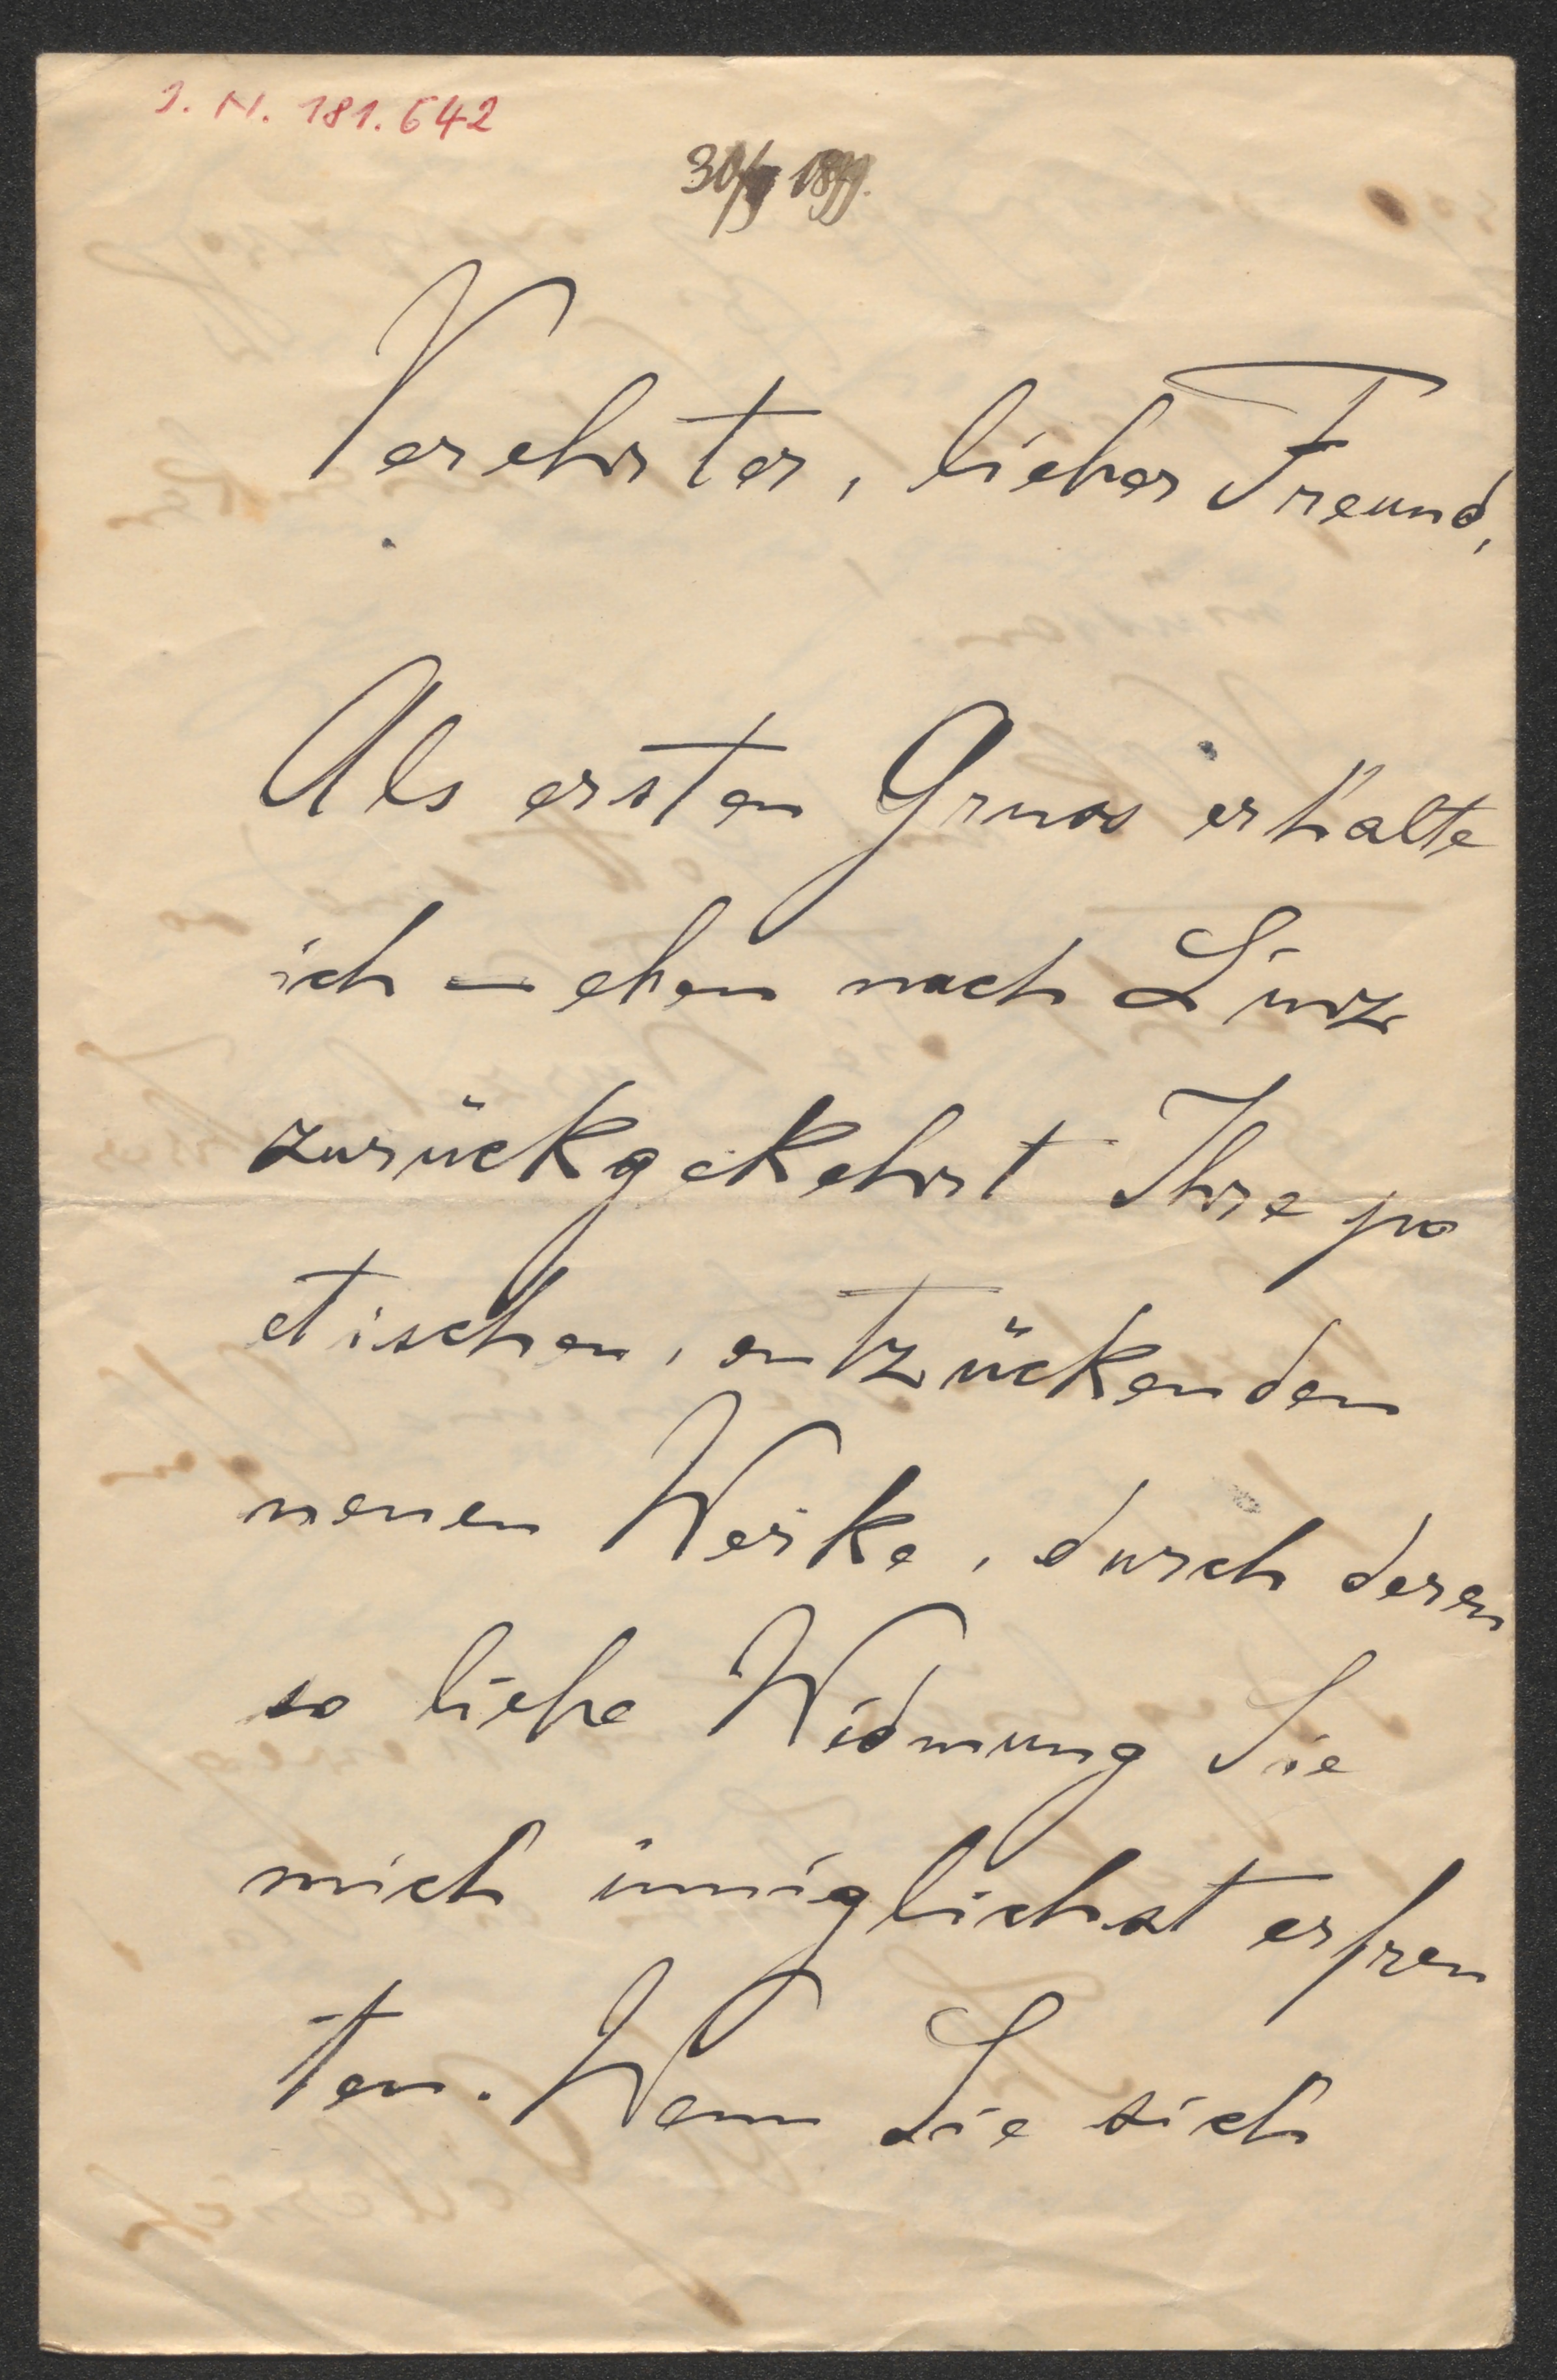 J. N. 181.642
Verehrter, lieber Freund,
Als ersten Gruss erhalte
ich – eben nach Linz
zurückgekehrt Ihre po
etischen, entzückenden
neuen Werke, durch deren
so liebe Widmung Sie
mich inniglichst erfreu
ten. Wenn Sie sich